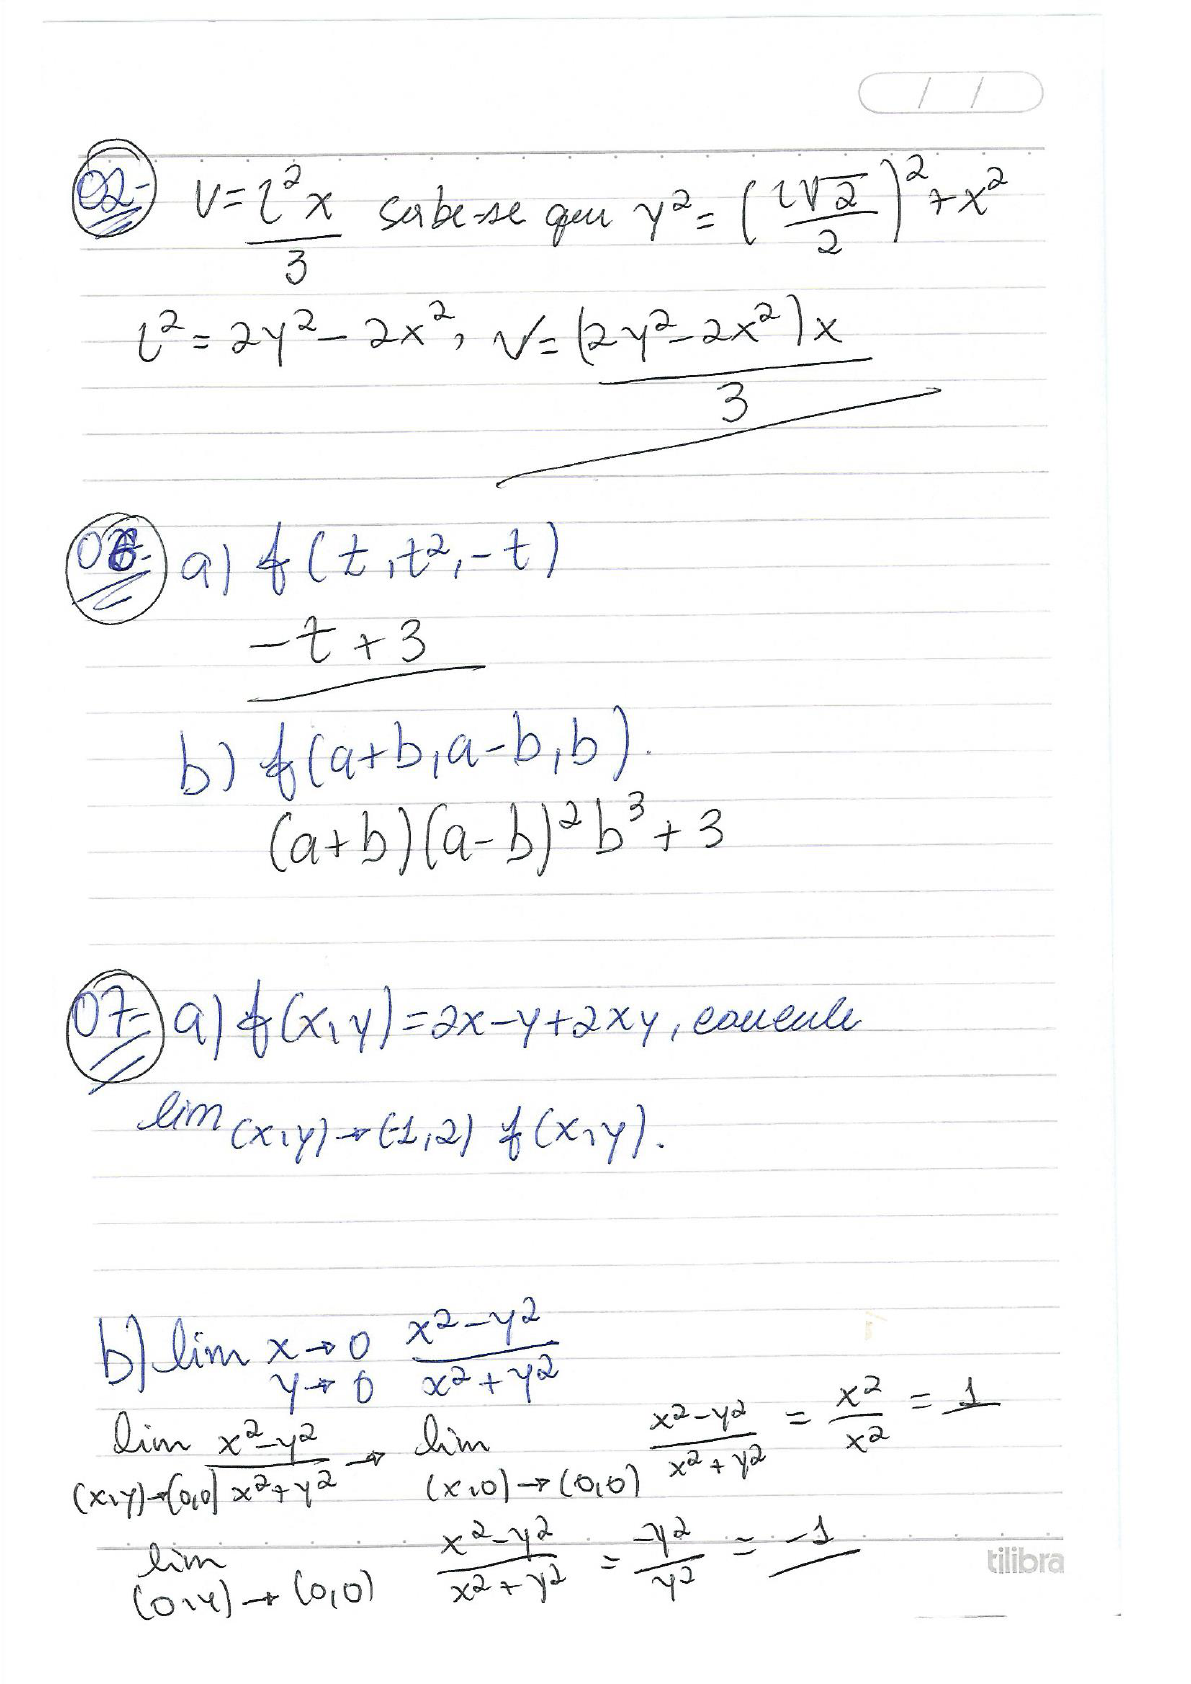 02- V = l²x / 3 sabe-se que y² = (l√2 / 2)² + x²
l² = 2y² - 2x², V = (2y² - 2x²)x / 3
06- a) f(t, t², -t)
-t + 3
b) f(a+b, a-b, b).
(a+b)(a-b)² b³ + 3
07- a) f(x,y) = 2x - y + 2xy,
lim (x,y) → (-1,2) f(x,y).
b) lim x→0 y→0 x² - y² / x² + y²
lim (x,y)→(0,0) x² - y² / x² + y² → lim (x,0)→(0,0) x² - y² / x² + y² = x² / x² = 1
lim (0,y)→(0,0) x² - y² / x² + y² = -y² / y² = -1
tilibra